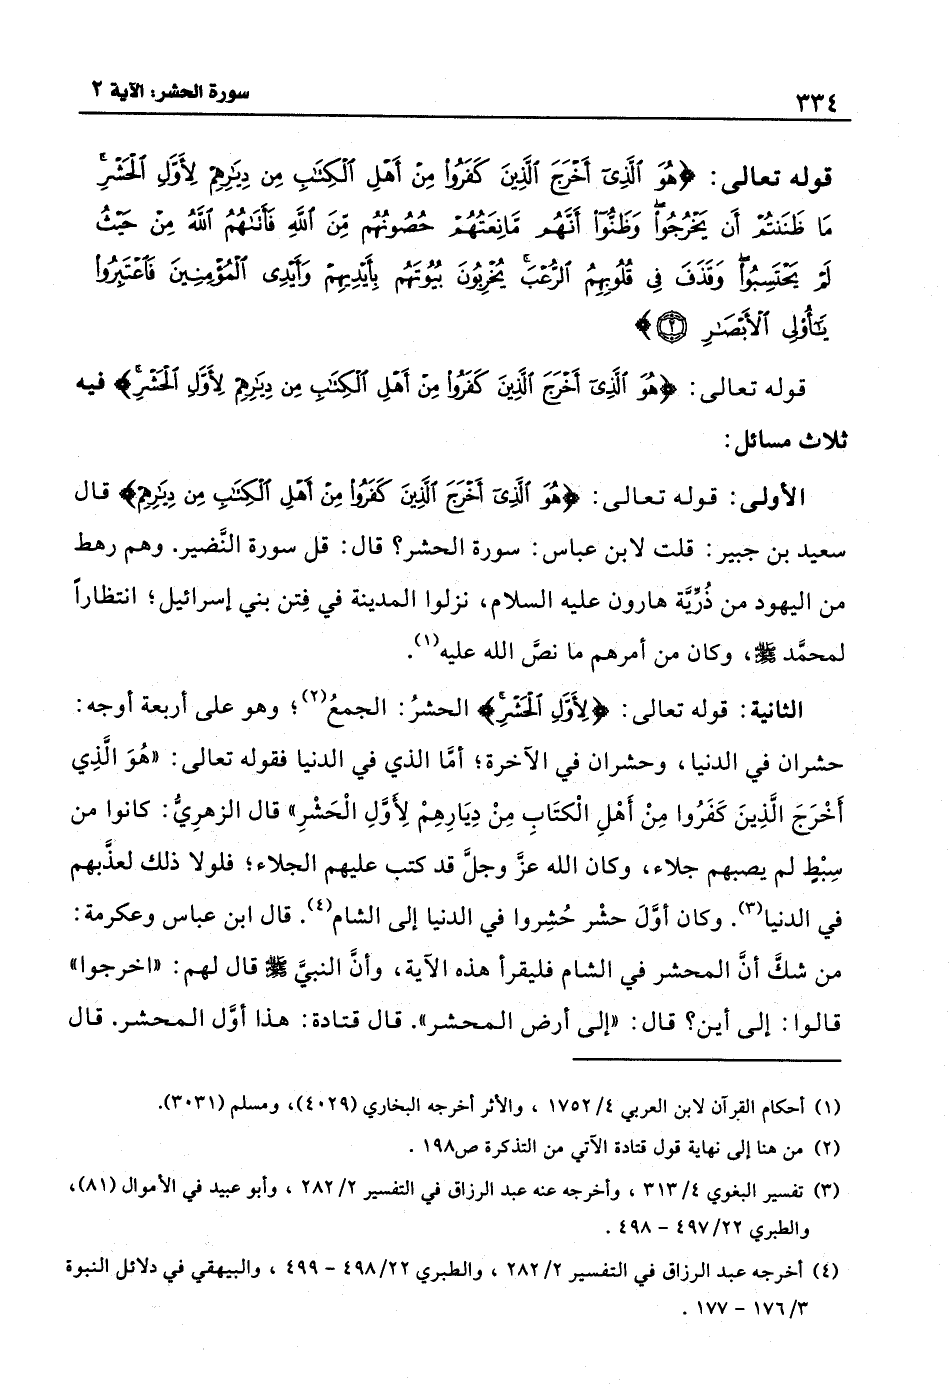 ٣٣٤
سورة الحشر: الآية ٢
قوله تعالى: ﴿هُوَ ٱلَّذِىٓ أَخْرَجَ ٱلَّذِينَ كَفَرُوا۟ مِنْ أَهْلِ ٱلْكِتَـٰبِ مِن دِيَـٰرِهِمْ لِأَوَّلِ ٱلْحَشْرِ ۚ
مَا ظَنَنتُمْ أَن يَخْرُجُوا۟ ۖ وَظَنُّوٓا۟ أَنَّهُم مَّانِعَتُهُمْ حُصُونُهُم مِّنَ ٱللَّهِ فَأَتَىٰهُمُ ٱللَّهُ مِنْ حَيْثُ
لَمْ يَحْتَسِبُوا۟ ۖ وَقَذَفَ فِى قُلُوبِهِمُ ٱلرُّعْبَ ۚ يُخْرِبُونَ بُيُوتَهُم بِأَيْدِيهِمْ وَأَيْدِى ٱلْمُؤْمِنِينَ فَٱعْتَبِرُوا۟
يَـٰٓأُو۟لِى ٱلْأَبْصَـٰرِ ٢﴾
قوله تعالى: ﴿هُوَ ٱلَّذِىٓ أَخْرَجَ ٱلَّذِينَ كَفَرُوا۟ مِنْ أَهْلِ ٱلْكِتَـٰبِ مِن دِيَـٰرِهِمْ لِأَوَّلِ ٱلْحَشْرِ ۚ﴾ فيه
ثلاث مسائل:
الأولى: قوله تعالى: ﴿هُوَ ٱلَّذِىٓ أَخْرَجَ ٱلَّذِينَ كَفَرُوا۟ مِنْ أَهْلِ ٱلْكِتَـٰبِ مِن دِيَـٰرِهِمْ﴾ قال
سعيد بن جبير: قلت لابن عباس: سورة الحشر؟ قال: قل سورة النَّضير. وهم رهط
من اليهود من ذُرِّيَّة هارون عليه السلام، نزلوا المدينة في فِتن بني إسرائيل؛ انتظاراً
لمحمَّد ﷺ، وكان من أمرهم ما نصَّ الله عليه(١).
الثانية: قوله تعالى: ﴿لِأَوَّلِ ٱلْحَشْرِ ۚ﴾ الحشرُ: الجمعُ(٢)؛ وهو على أربعة أوجه:
حشران في الدنيا، وحشران في الآخرة؛ أمَّا الذي في الدنيا فقوله تعالى: «هُوَ الَّذِي
أَخْرَجَ الَّذِينَ كَفَرُوا مِنْ أَهْلِ الْكتَابِ مِنْ دِيَارِهِمْ لِأَوَّلِ الْحَشْرِ» قال الزهريُّ: كانوا من
سِبْطٍ لم يصبهم جلاء، وكان الله عزَّ وجلَّ قد كتب عليهم الجلاء؛ فلولا ذلك لعذَّبهم
في الدنيا(٣). وكان أوَّلَ حشْر حُشِروا في الدنيا إلى الشام(٤). قال ابن عباس وعكرمة:
من شكَّ أنَّ المحشر في الشام فليقرأ هذه الآية، وأنَّ النبيَّ ﷺ قال لهم: «اخرجوا»
قالوا: إلى أين؟ قال: «إلى أرض المحشر». قال قتادة: هذا أوَّل المحشر. قال
(١) أحكام القرآن لابن العربي ٤/ ١٧٥٢ ، والأثر أخرجه البخاري (٤٠٢٩)، ومسلم (٣٠٣١).
(٢) من هنا إلى نهاية قول قتادة الآتي من التذكرة ص١٩٨ .
(٣) تفسير البغوي ٤/ ٣١٣ ، وأخرجه عنه عبد الرزاق في التفسير ٢/ ٢٨٢ ، وأبو عبيد في الأموال (٨١)،
والطبري ٢٢/ ٤٩٧ – ٤٩٨ .
(٤) أخرجه عبد الرزاق في التفسير ٢/ ٢٨٢ ، والطبري ٢٢/ ٤٩٨ – ٤٩٩ ، والبيهقي في دلائل النبوة
٣/ ١٧٦ – ١٧٧ .